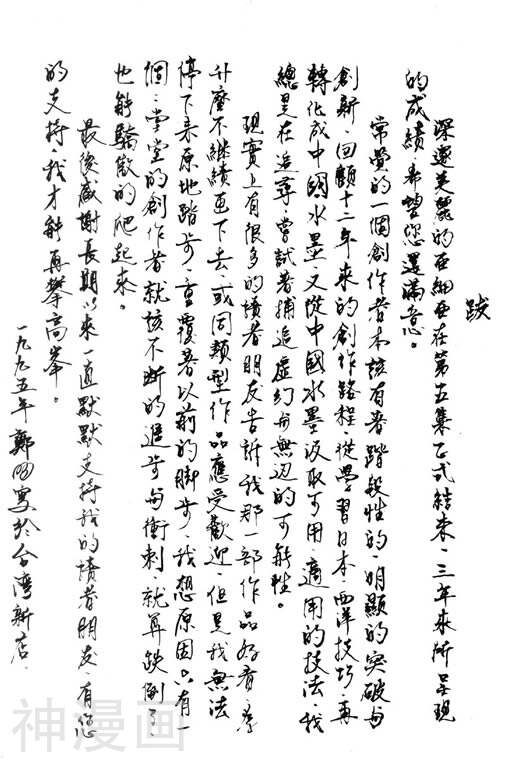 跋
深邃美麗的亞細亞在第五集正式結束，三年來所呈現
的成績，希望您還滿意。
常覺的一個創作者本該有著階段性的，明顯的突破與
創新，回顧十二年來的創作路程，從學習日本、西洋技巧，再
轉化成中國水墨，又從中國水墨汲取可用、適用的技法，我
總是在追尋、嘗試著捕追虛幻與無邊的可能性。
現實上有很多的讀者朋友告訴我那一部作品好看，為
什麼不繼續畫下去，或同類型作品應受歡迎，但是我無法
停下來原地踏步，重覆著以前的脚步，我想原因只有一
個，堂堂的創作者就該不斷的進步與衝刺，就算跌倒了，
也能驕傲的爬起來。
最後感謝長期以來一直默默支持我的讀者朋友，有您
的支持，我才能再攀高峯。
一九九五年鄭問寫於台灣新店.
神漫画